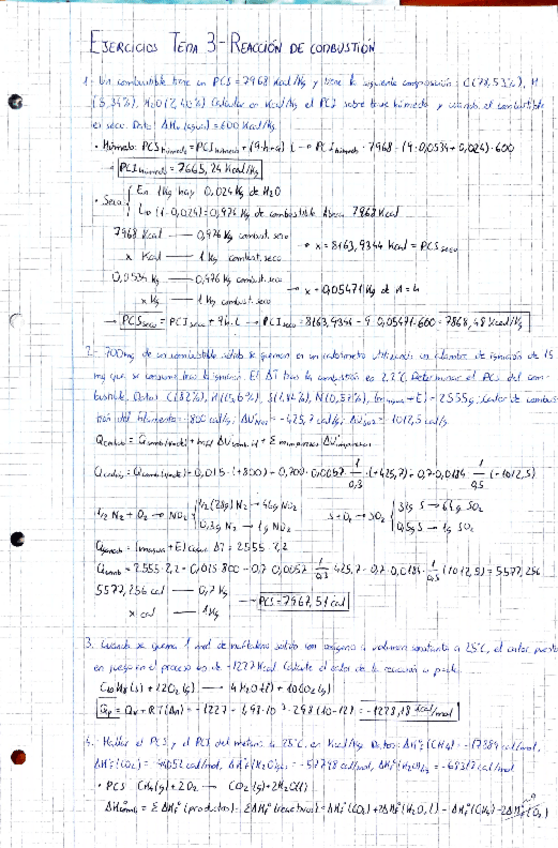 EJERCICIOS TEMA 3 - REACCIÓN DE COMBUSTIÓN
1.- Un combustible tiene un PCS = 7968 Kcal/Kg y tiene la siguiente composición: C(78,53%), H
(5,34%), H₂O(2,40%) Calcular en Kcal/Kg el PCI sobre base húmeda y usando el combustible
en seco. Dato: ΔHv(agua) = 600 Kcal/Kg
• Húmedo: PCS húmedo = PCI húmedo + (9·h+a) L → PCI húmedo = 7968 - (9·0,0534+0,024)·600
PCI húmedo = 7665,24 Kcal/Kg
• Seco { En 1Kg hay 0,024 Kg de H₂O
(1-0,024) = 0,976 Kg de combustible 7968 Kcal
7968 Kcal — 0,976 Kg combust. seco
x Kcal — 1 Kg combust. seco → x = 8163,9344 Kcal = PCS seco
0,0534 Kg — 0,976 Kg combust. seco
x Kg — 1 Kg combust. seco → x = 0,05471 Kg de H = h
→ PCS seco = PCI seco + 9h·L → PCI seco = 8163,9344 - 9·0,05471·600 = 7868,48 Kcal/Kg
2.- 700mg de un combustible sólido se queman en un calorímetro utilizando un alambre de ignición de 15
mg que se consume tras la ignición. El ΔT tras la combustión es 2,2°C. Determinar el PCS del com-
bustible. Datos: C(82%), H(5,6%), S(1,84%), N(0,57%), (m agua + E) = 2555g; Calor de combus-
tión del filamento = 800 cal/g; = -425,7 cal/g; = -1012,5 cal/g
1/2 N₂ + O₂ → NO₂ { 1/2 (28g) N₂ → 46g NO₂
0,3g N₂ → 1g NO₂
S + O₂ → SO₂ { 32g S → 64g SO₂
0,5g S → 1g SO₂
ΔT = 2555·2,2
5577,256 cal — 0,7 Kg
x cal — 1 Kg → PCS = 7967,51 cal
3. Cuando se quema 1 mol de naftaleno sólido con oxígeno a volumen constante a 25°C, el calor puesto
en juego en el proceso es de -1227 Kcal Calcule el calor de la reacción a p cte.
C₁₀H₈(s) + 12O₂(g) → 4H₂O(l) + 10CO₂(g)
Qp = Qv + RT(Δn) = -1227 - 1,98·10⁻³·298 (10-12) = -1228,18 Kcal/mol
4.- Hallar el PCS y el PCI del metano a 25°C en Kcal/Kg. Datos: ΔHf°(CH₄) = -17889 cal/mol,
ΔHf°(CO₂) = -94052 cal/mol, ΔHf°(H₂O)g = -57798 cal/mol, ΔHf°(H₂O)l = -68317 cal/mol
• PCS CH₄(g) + 2O₂ → CO₂(g) + 2H₂O(l)
ΔH°comb = ΣΔHf°(productos) - ΣΔHf°(reactivos) = ΔHf°(CO₂) + 2ΔHf°(H₂O, l) - ΔHf°(CH₄) - 2ΔHf°(O₂)